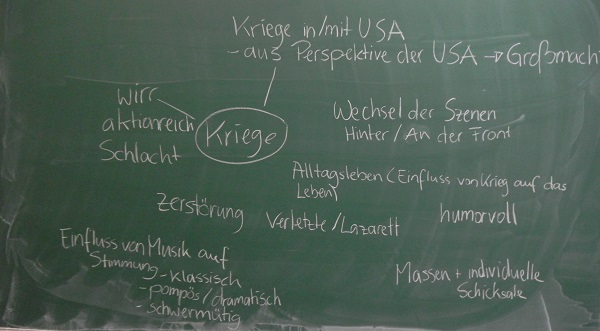 Kriege in/mit USA
- aus Perspektive der USA → Großmacht
wirr
aktionreich
Schlacht
Kriege
Wechsel der Szenen
Hinter / An der Front
Alltagsleben (Einfluss von Krieg auf das
Leben)
Zerstörung
Verletzte / Lazarett
humorvoll
Einfluss von Musik auf
Stimmung - klassisch
- pompös / dramatisch
- schwermütig
Massen + individuelle
Schicksale